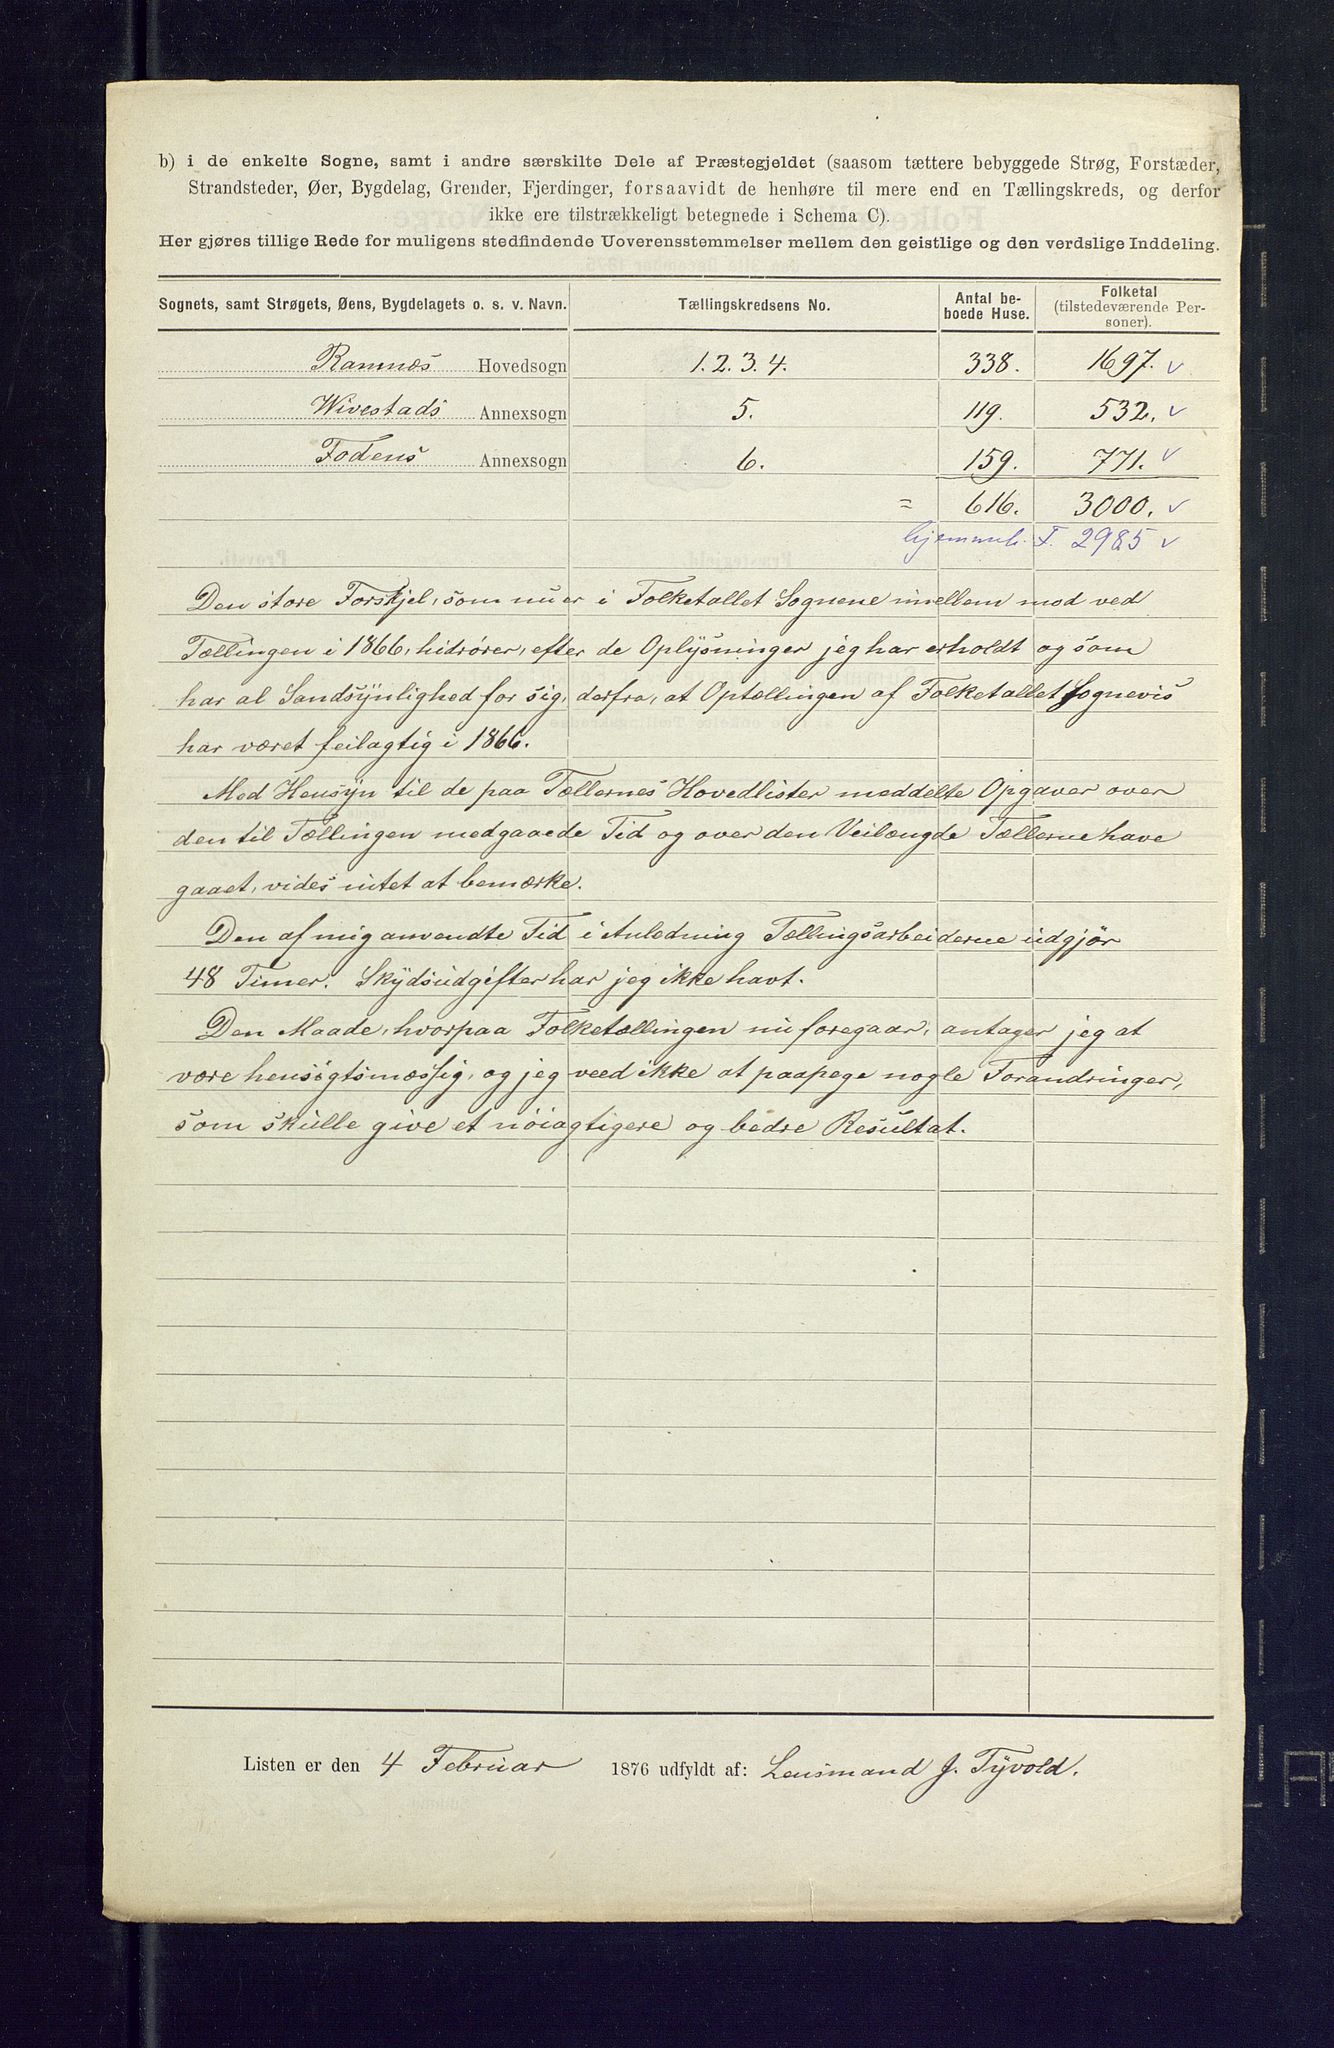 b) i de enkelte Sogne, samt i andre særskilte Dele af Præstegjeldet (saasom tættere bebyggede Strøg, Forstæder,
Strandsteder, Øer, Bygdelag, Grender, Fjerdinger, forsaavidt de henhøre til mere end en Tællingskreds, og derfor
ikke ere tilstrækkeligt betegnede i Schema C).
Her gjøres tillige Rede for muligens stedfindende Uoverensstemmelser mellem den geistlige og den verdslige Inddeling.
Sognets, samt Strøgets, Øens, Bygdelagets o. s. v. Navn. Tællingskredsens No. Antal be-
boede Huse. Folketal
(tilstedeværende Per-
soner).
Ramnæs Hovedsogn 1. 2. 3. 4. 338. 1697. ✓
Wivestads Annexsogn 5. 119. 532. ✓
Fodens Annexsogn 6. 159. 771. ✓
= 616. 3000. ✓
hjemmeh. F. 2985 ✓
Den store Forskjel, som nu er i Folketallet Sognene imellem mod ved
Tællingen i 1866, hidrører, efter de Oplysninger jeg har erholdt og som
har al Sandsynlighed for sig, derfra, at Optællingen af Folketallet Sognevis
har været feilagtig i 1866.
Med Hensyn til de paa Tællernes Hovedlister meddelte Opgaver over
den til Tællingen medgaaede Tid og over den Veilængde Tællerne have
gaaet, vides intet at bemærke.
Den af mig anvendte Tid i Anledning Tællingsarbeiderne udgjør
48 Timer. Skydsudgifter har jeg ikke havt.
Den Maade, hvorpaa Folketællingen nu foregaar, antager jeg at
være hensigtsmæssig, og jeg veed ikke at paapege nogle Forandringer,
som skulle give et nøiagtigere og bedre Resultat.
Listen er den 4 Februar 1876 udfyldt af: Lensmand J. Tyvold.